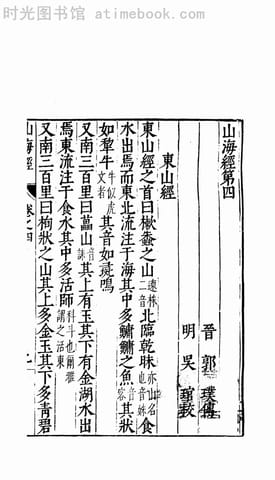 时光图书馆 atimebook.com
山海經第四
晉 郭 璞 傳
明 吳 琯 校
東山經
東山經之首曰樕䰅之山速株二音北臨乾昧亦山名也音妹食
水出焉而東北流注于海其中多鱅鱅之魚音容其狀
如犂牛牛似虎文者其音如彘鳴
又南三百里曰藟山音誄其上有玉其下有金湖水出
焉東流注于食水其中多活師科斗也爾雅謂之活東
又南三百里曰枸狀之山其上多金玉其下多青碧
山海經
卷之四